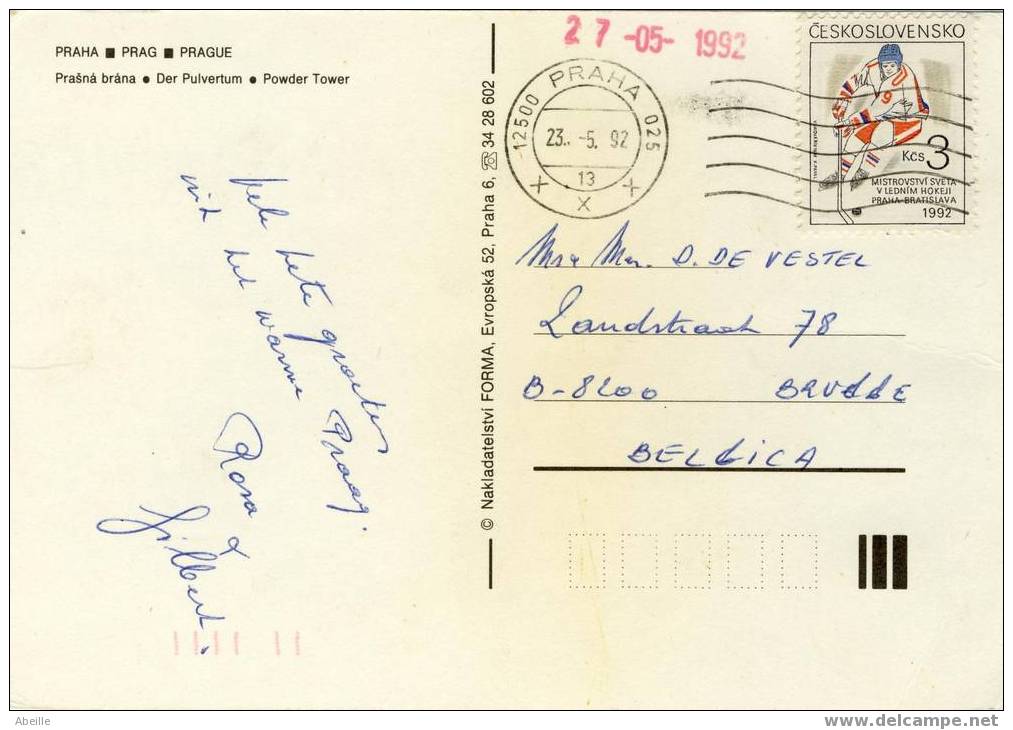 PRAHA ■ PRAG ■ PRAGUE
Prašná brána ● Der Pulvertum ● Powder Tower
hete groeten
uit het warme Praag.
Rosa &
Gilbert.
© Nakladatelství FORMA, Evropská 52, Praha 6, ☎ 34 28 602
27 -05- 1992
12500 PRAHA 025
23. -5. 92
13
X
ČESKOSLOVENSKO
9
Kčs 3
MISTROVSTVÍ SVĚTA
V LEDNÍM HOKEJI
PRAHA-BRATISLAVA
1992
D. DE VESTEL
Zandstraat 78
B-8200 BRUGGE
BELGICA
Abeille
www.delcampe.net